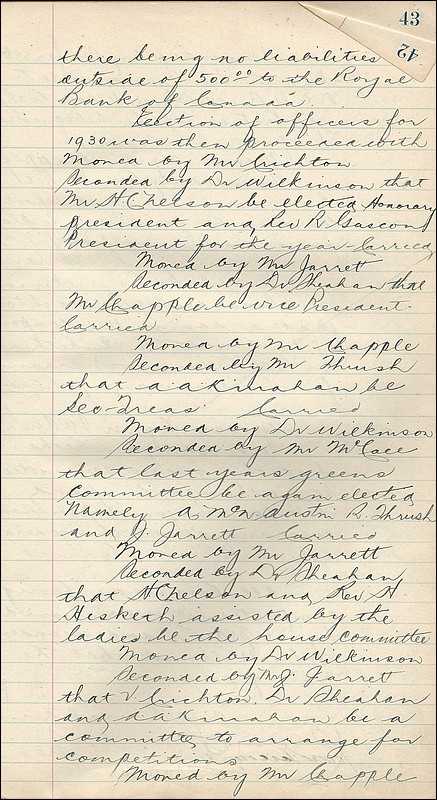 43
42
there being no liabilities
outside of 500⁰⁰ to the Royal
Bank of Canada.
Election of officers for
1930 was then proceeded with
Moved by Mr Crichton
Seconded by Dr. Wilkinson that
Mr H Chelson be elected Honorary
president and Rev R Gascon
President for the year Carried
Moved by Mr Jarrett
Seconded by Dr Sheahan that
Mr Chapple be vice President.
Carried
Moved by Mr Chapple
Seconded by Mr Thrush
that A A Kinnahan be
Sec-Treas Carried
Moved by Dr Wilkinson
Seconded by Mr
that last years greens
Committee be again elected
Namely A. McN. Austin R. Thrush
and J. Jarrett Carried
Moved by Mr Jarrett
Seconded by Dr Sheahan
that H Chelson and Rev H
Hesketh assisted by the
ladies be the house committee
Moved by Dr Wilkinson
Seconded by Mr J. Jarret
that V Crichton, Dr Sheahan
and A A Kinnahan be a
committee to arrange for
competitions
Moved by Mr Chapple